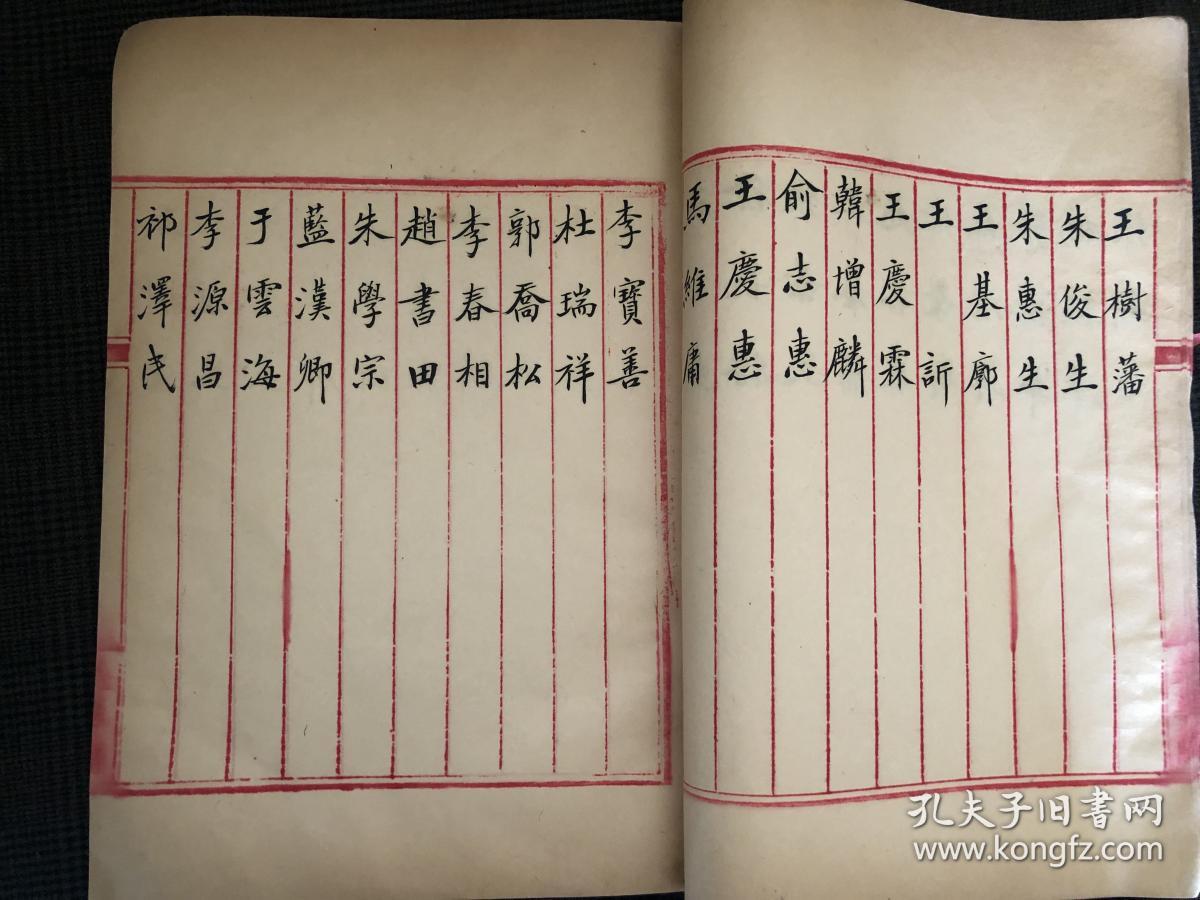 王樹藩
朱俊生
朱惠生
王基廓
王訢
王慶霖
韓增麟
俞志惠
王慶惠
馬維庸
李寶善
杜瑞祥
郭喬松
李春相
趙書田
朱學宗
藍漢卿
于雲海
李源昌
祁澤民
孔夫子旧书网
www.kongfz.com